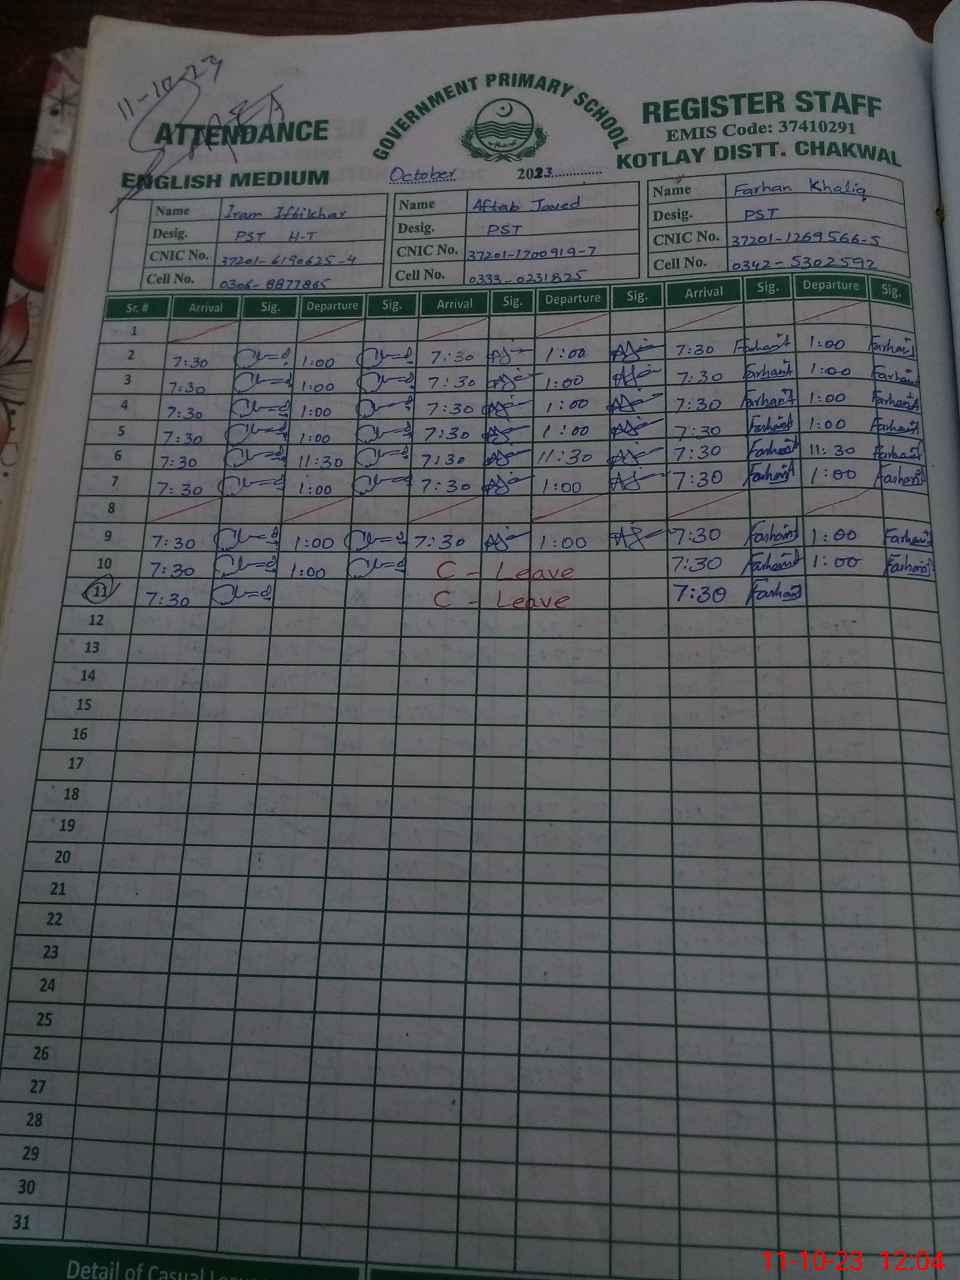 11-10-23
ATTENDANCE
ENGLISH MEDIUM
GOVERNMENT PRIMARY SCHOOL
REGISTER STAFF
EMIS Code: 37410291
KOTLAY DISTT. CHAKWAL
October 2023
Name Iram Iftikhar
Desig. PST H-T
CNIC No. 37201-6190625-4
Cell No. 0306-8877865
Name Aftab Javed
Desig. PST
CNIC No. 37201-1700919-7
Cell No. 0333-0231825
Name Farhan Khaliq
Desig. PST
CNIC No. 37201-1269566-5
Cell No. 0342-5302592
Sr. # Arrival Sig. Departure Sig. Arrival Sig. Departure Sig. Arrival Sig. Departure Sig.
1
2 7:30 1:00 7:30 1:00 7:30 1:00
3 7:30 1:00 7:30 1:00 7:30 1:00
4 7:30 1:00 7:30 1:00 7:30 1:00
5 7:30 1:00 7:30 1:00 7:30 1:00
6 7:30 11:30 7:30 11:30 7:30 11:30
7 7:30 1:00 7:30 1:00 7:30 1:00
8
9 7:30 1:00 7:30 1:00 7:30 1:00
10 7:30 1:00 C - Leave 7:30 1:00
11 7:30 C - Leave 7:30
12
13
14
15
16
17
18
19
20
21
22
23
24
25
26
27
28
29
30
31
Detail of Casual
11-10-23 12:04